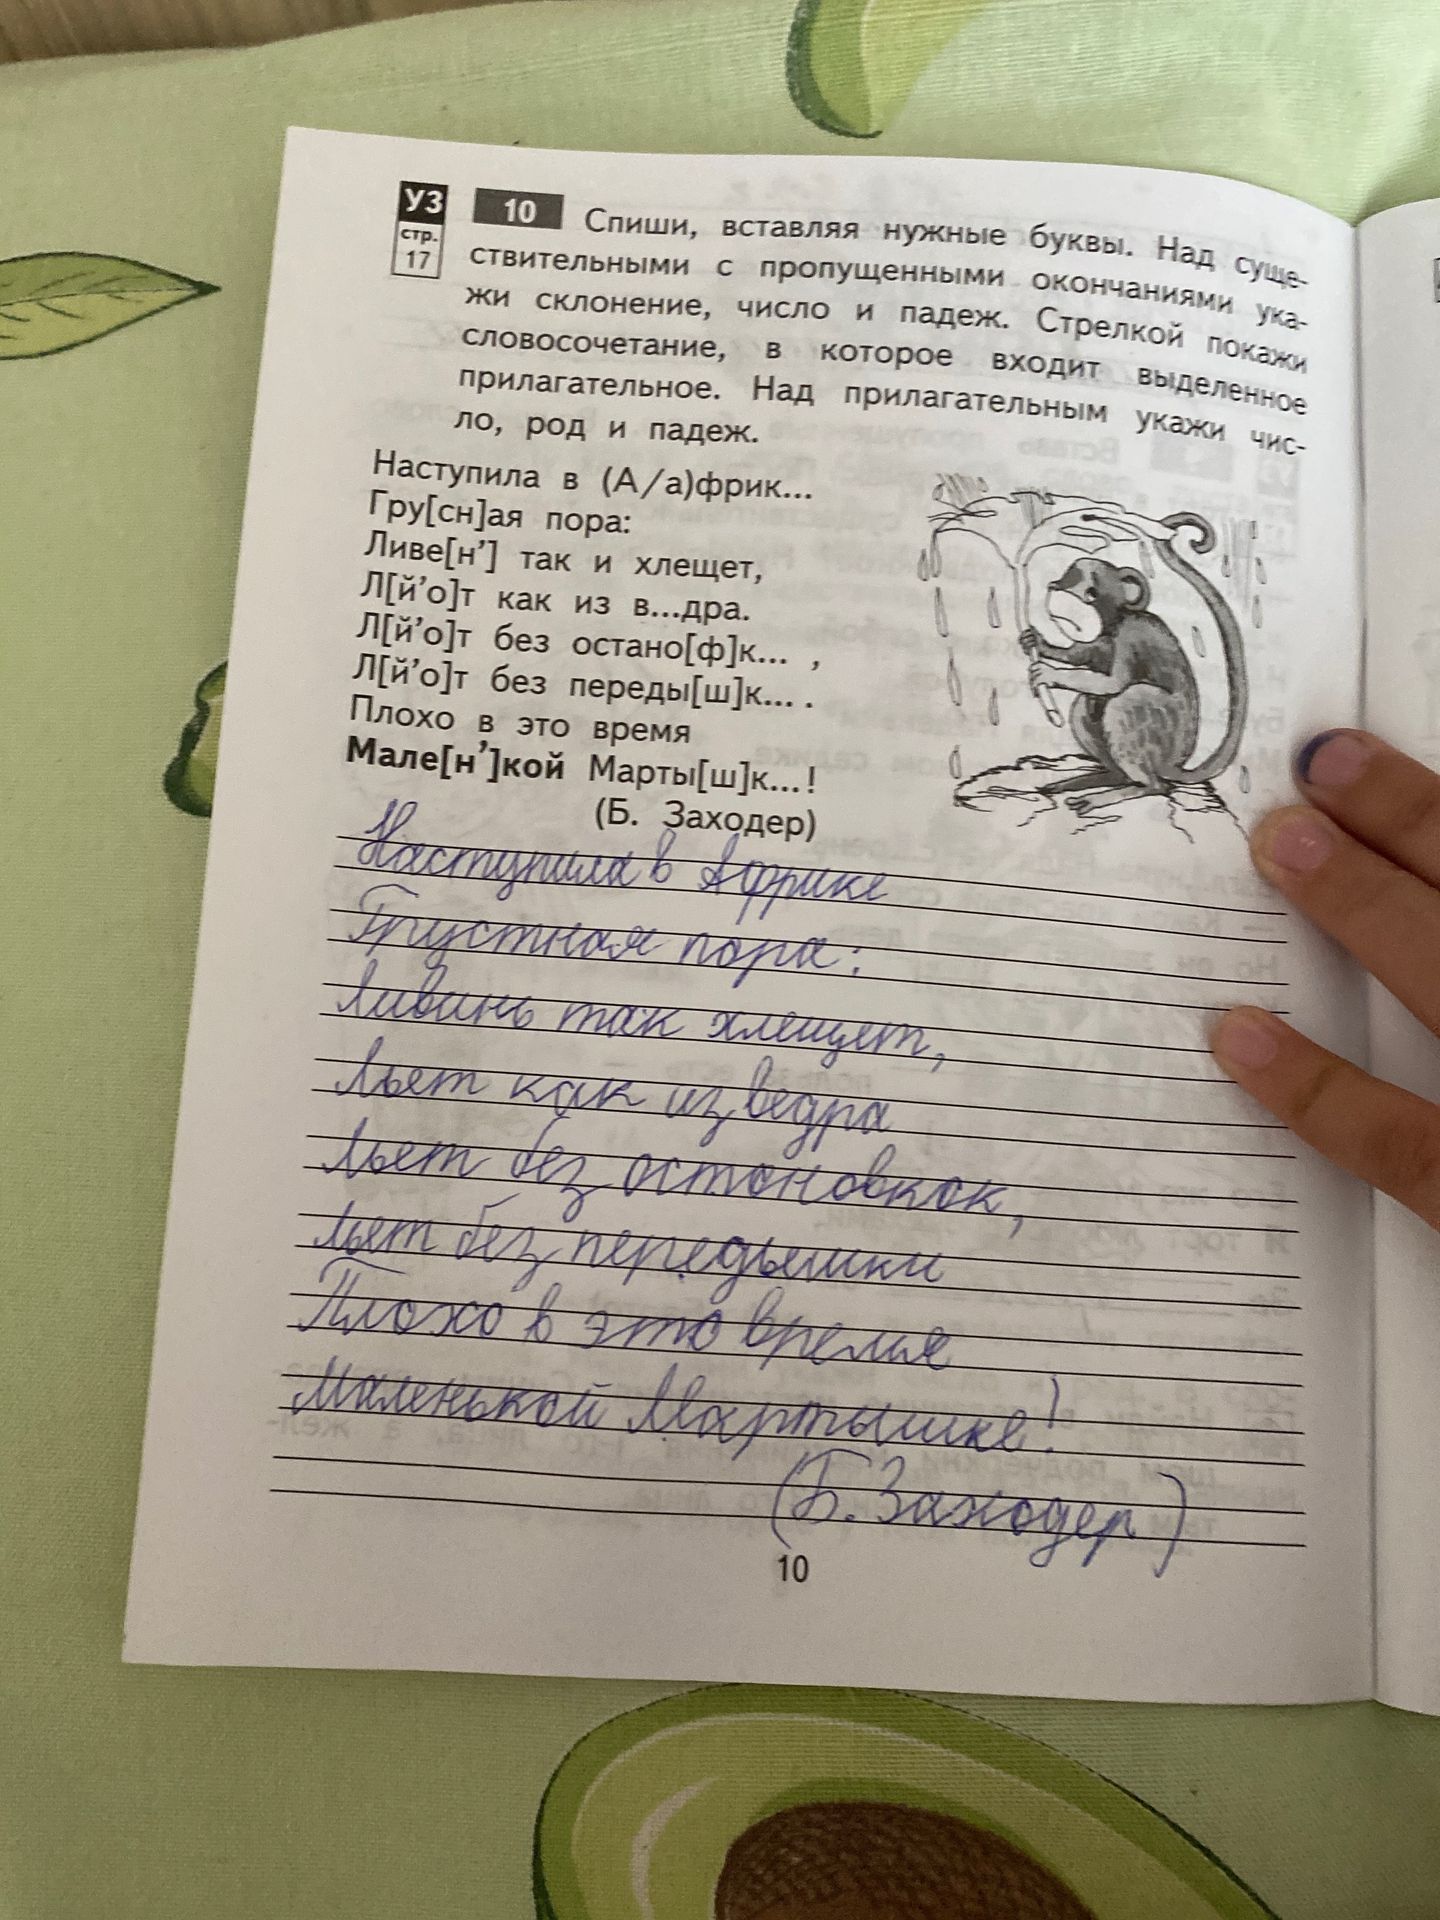 УЗ
стр.
17
10 Спиши, вставляя нужные буквы. Над суще-
ствительными с пропущенными окончаниями ука-
жи склонение, число и падеж. Стрелкой покажи
словосочетание, в которое входит выделенное
прилагательное. Над прилагательным укажи чис-
ло, род и падеж.
Наступила в (А/а)фрик...
Гру[сн]ая пора:
Ливе[н’] так и хлещет,
Л[й’о]т как из в...дра.
Л[й’о]т без остано[ф]к... ,
Л[й’о]т без переды[ш]к... .
Плохо в это время
Мале[н’]кой Марты[ш]к...!
(Б. Заходер)
Наступила в Африке
Грустная пора:
Ливинь так хлещет,
Льет как из ведра
Льет без остановкок,
Льет без передышки
Плохо в это время
Маленькой Мартышке!
(Б. Заходер)
10